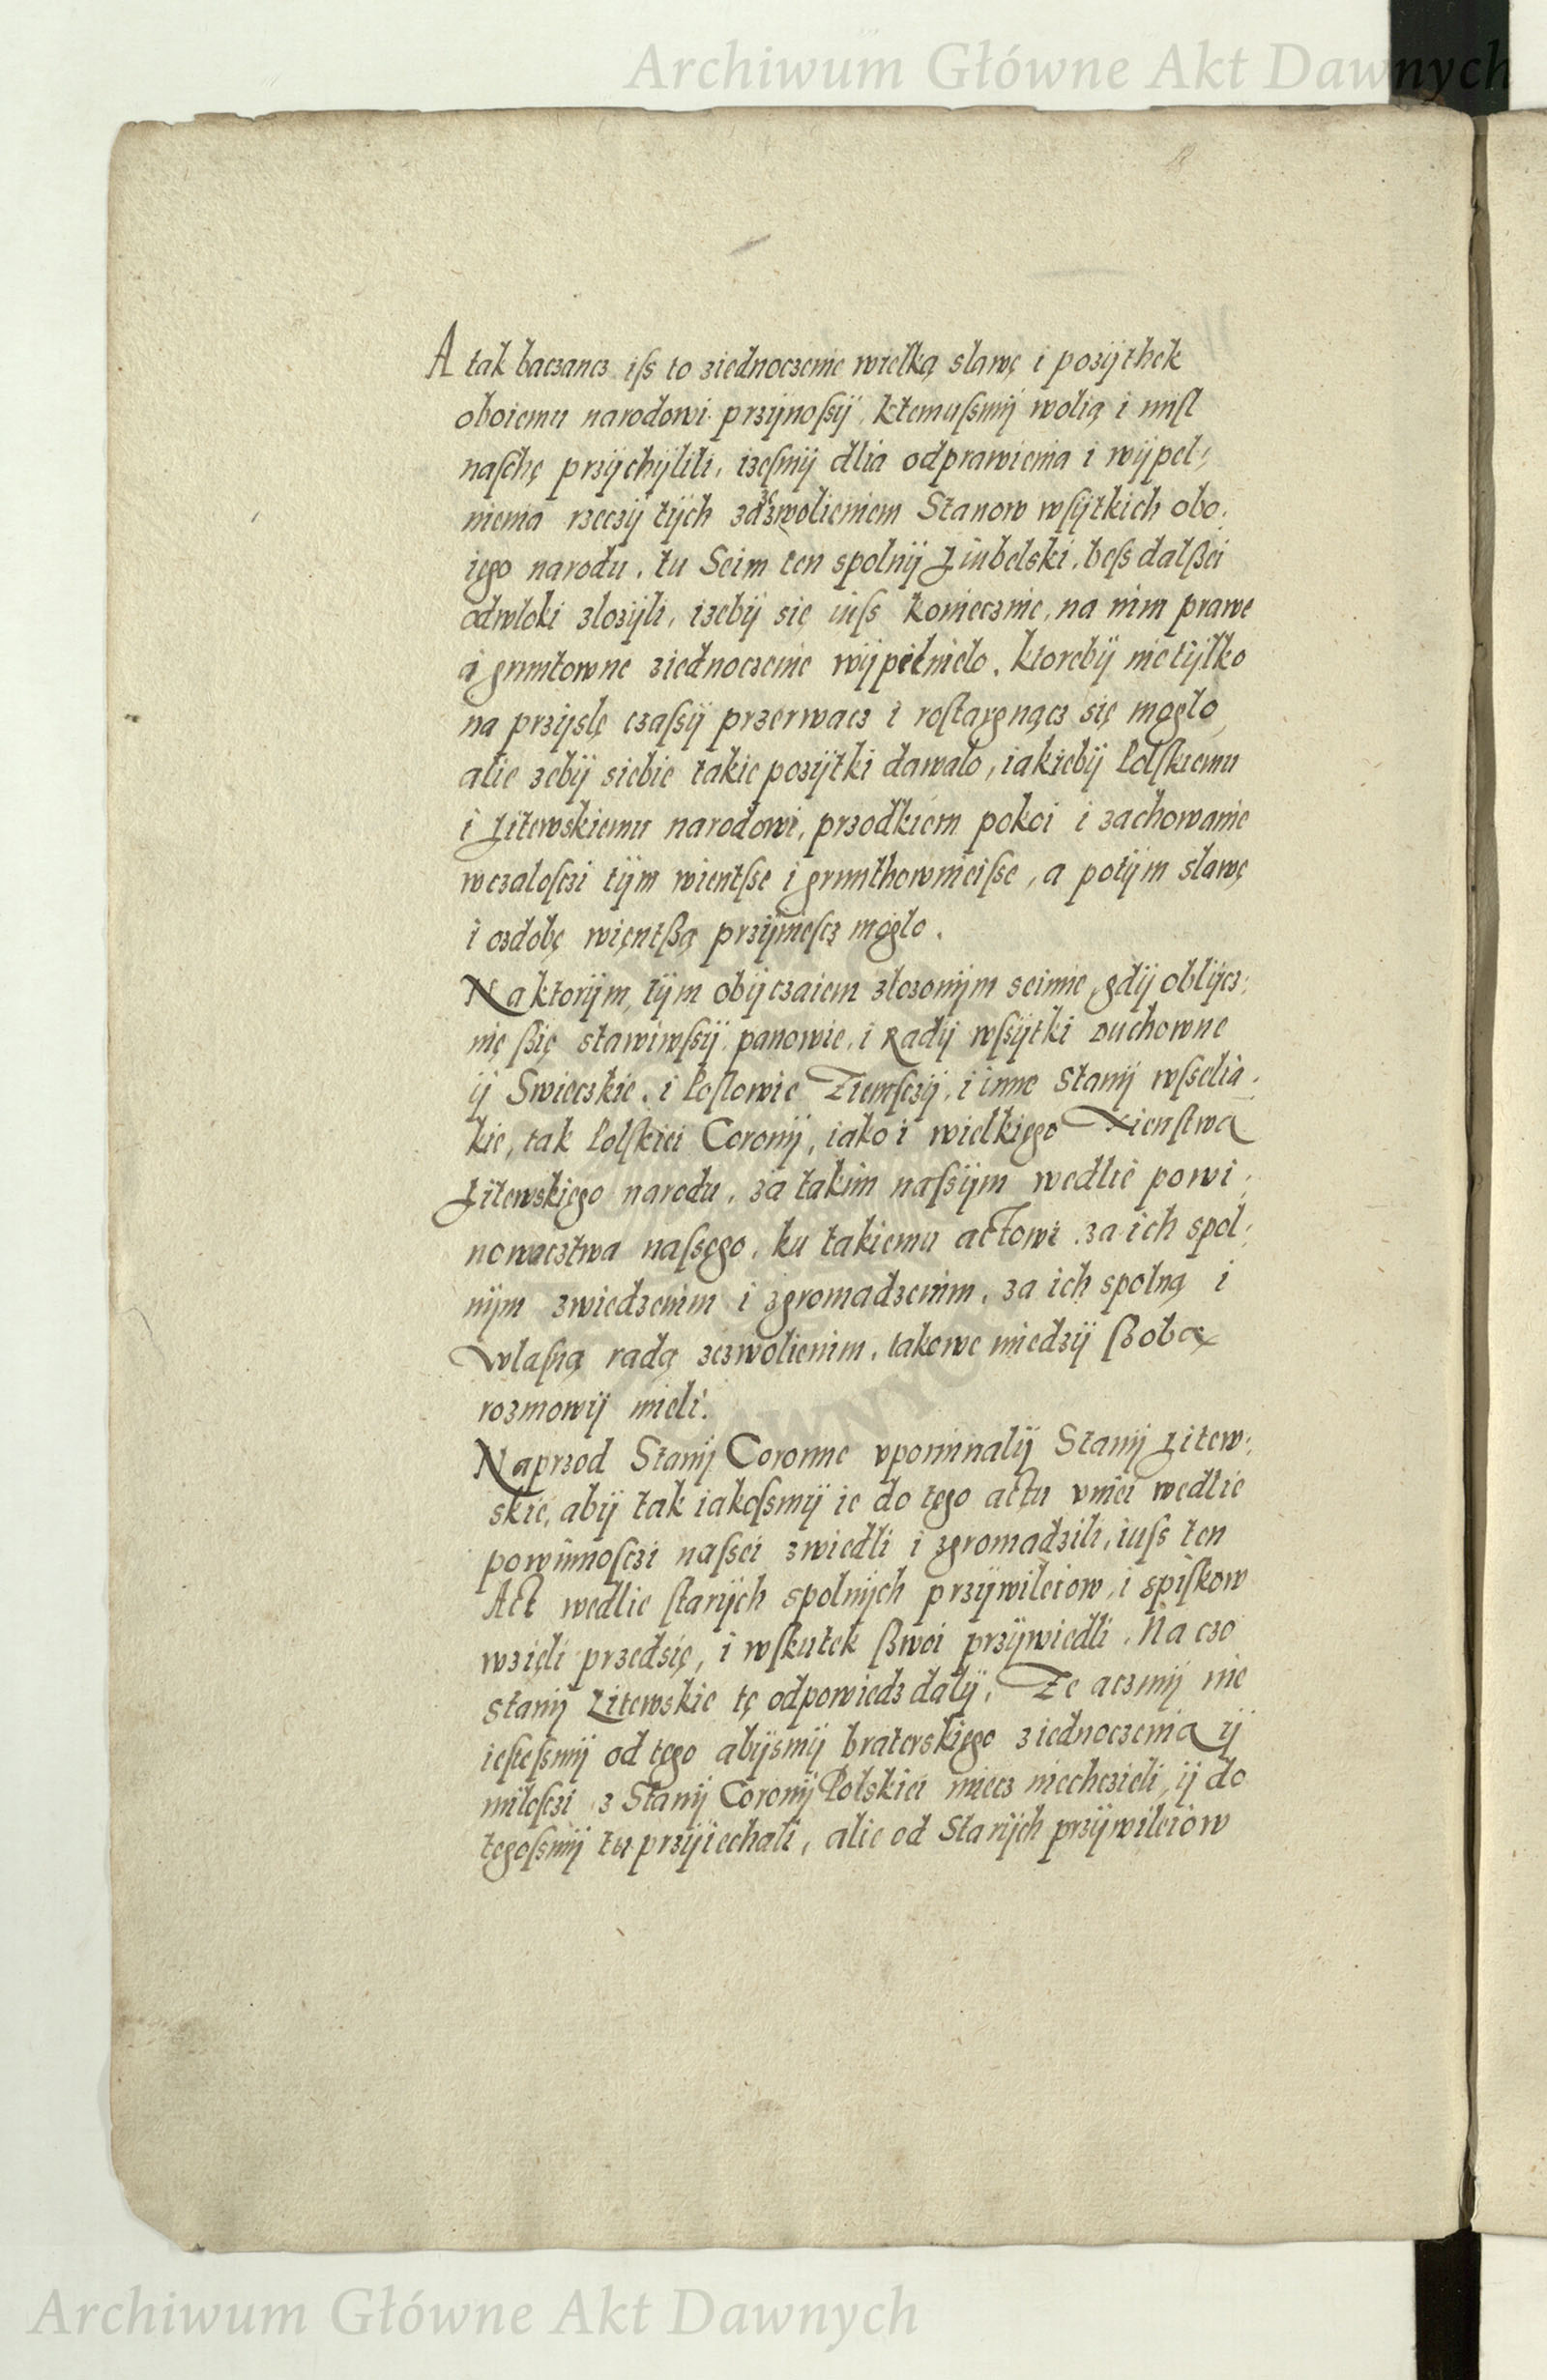 Archiwum Główne Akt Dawnych
A tak baczancz iſs to ziednoczenie wielką slawę i pozÿthek
oboiemu narodowi przÿnoſsÿ, ktemuſsmÿ wolią i miſl
naſchę przÿchÿlili, izeſmÿ dlia odprawienia i wÿpel,
nienia rzeczÿ tÿch zezwolieniem Stanow wſsÿtkich obo,
iego narodu, tu Seim ten spolnÿ Liubelski, beſs dalßei
odwloki zlozÿli, izebÿ się iuſs koniecznie, na nim prawe
a gruntowne ziednoczenie wÿpelnielo, ktorebÿ nie tÿlko
na przÿslę czaſsÿ przerwacz i roſtargnącz się moglo,
alie zebÿ siebie takie pozÿtki dawalo, iakiebÿ Polſkiemu
i Litewskiemu narodowi, przodkiem pokoi i zachowanie
wczaloſczi tÿm wientſse i grunthownieiſse, a potÿm slawę
i ozdobę więntßą przÿnieſcz moglo.
Na ktorÿm, tÿm obÿczaiem zlozonÿm seimie, gdÿ oblÿcz,
nię ßię stawiwſsÿ, panowie, i Radÿ wſsÿtki Duchowne
ÿ Swieczkie, i Poſlowie Ziemſczÿ, i inne Stanÿ wſselia,
kie, tak Polſkiei Coronÿ, iako i wielkięgo Xienſtwa
Litewskięgo narodu, za takim naſsÿm wedlie powi,
nowactwa naſsęgo, ku takiemu actowi za ich spol,
nÿm zwiedzenim i zgromadzenim, za ich spolną i
wlaſną radą zezwolienim, takowe miedzÿ ßobą
rozmowÿ mieli.
Naprzod Stanÿ Coronne upominalÿ Stanÿ Litew,
skie, abÿ tak iakoſsmÿ ie do tęgo actu uniei wedlie
powinnoſczi naſsei zwiedli i zgromadzili, iuſs ten
Act wedlie ſtarÿch spolnÿch przÿwileiow, i spiſkow
wzięli przedsię, i wſkutek ßwoi przÿwiedli. Na czo
stanÿ Litewskie tę odpowiedz dalÿ, Ze aczmÿ nie
ieſteſsmÿ od tęgo abÿsmÿ braterskięgo ziednoczenia ÿ
miloſczi z Stanÿ Coronÿ Polskiei miecz niechczieli, ÿ do
tegoſsmÿ tu przÿiechali, alie od Starÿch przÿwileiow
Archiwum Główne Akt Dawnych